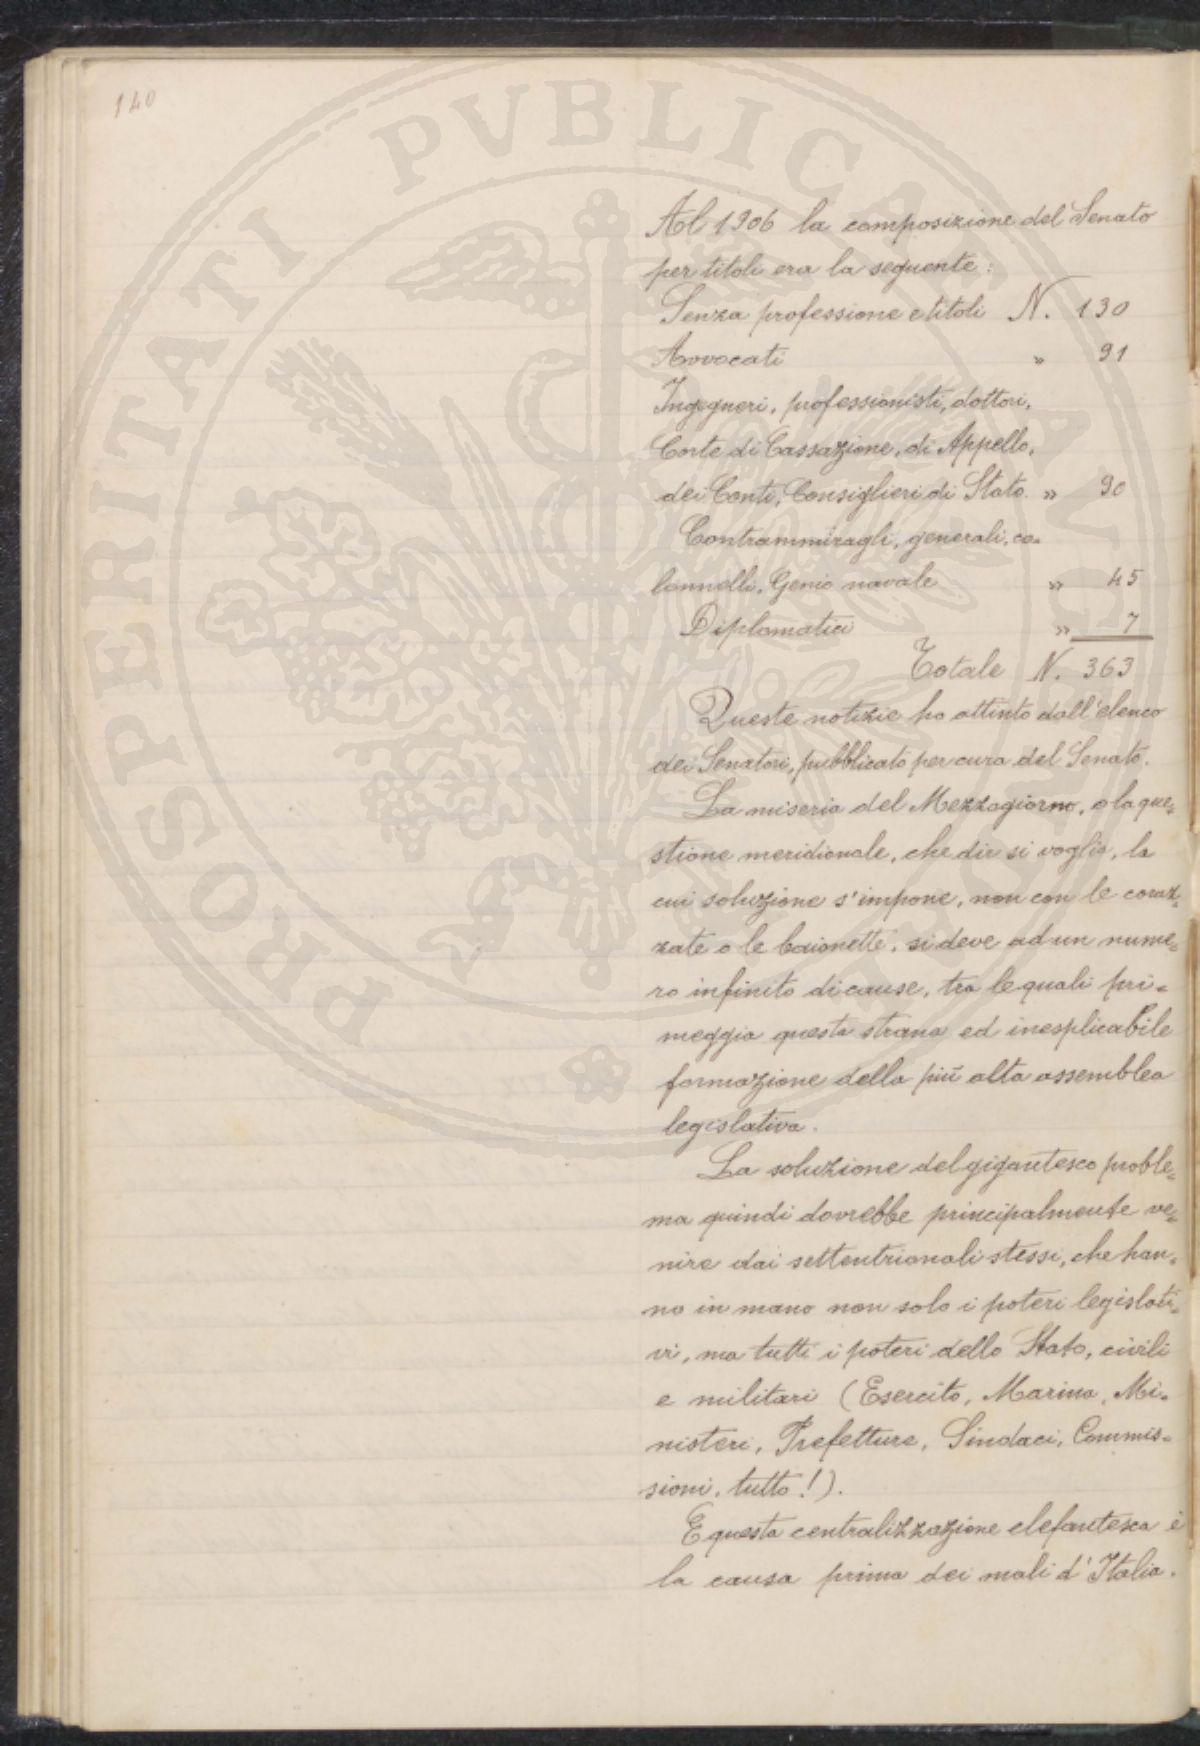 140
PROSPERITATI PVBLICAE AVGENDAE
Al 1906 la composizione del Senato
per titoli era la seguente:
Senza professione e titoli N. 130
Avvocati " 91
Ingegneri, professionisti, dottori,
Corte di Cassazione, di Appello,
dei Conti, Consiglieri di Stato. " 90
Contrammiragli, generali, co=
lonnelli, Genio navale " 45
Diplomatici " 7
Totale N. 363
Queste notizie ho attinto dall'elenco
dei Senatori, pubblicato per cura del Senato.
La miseria del Mezzogiorno, o la que=
stione meridionale, che dir si voglia, la
cui soluzione s'impone, non con le coraz=
zate o le baionette, si deve ad un nume=
ro infinito di cause, tra le quali pri=
meggia questa strana ed inesplicabile
formazione della più alta assemblea
legislativa.
La soluzione del gigantesco proble=
ma quindi dovrebbe principalmente ve=
nire dai settentrionali stessi, che han=
no in mano non solo i poteri legislati=
vi, ma tutti i poteri dello Stato, civili
e militari (Esercito, Marina, Mi=
nisteri, Prefetture, Sindaci, Commis=
sioni, tutto!).
E questa centralizzazione elefantesca è
la causa prima dei mali d'Italia.